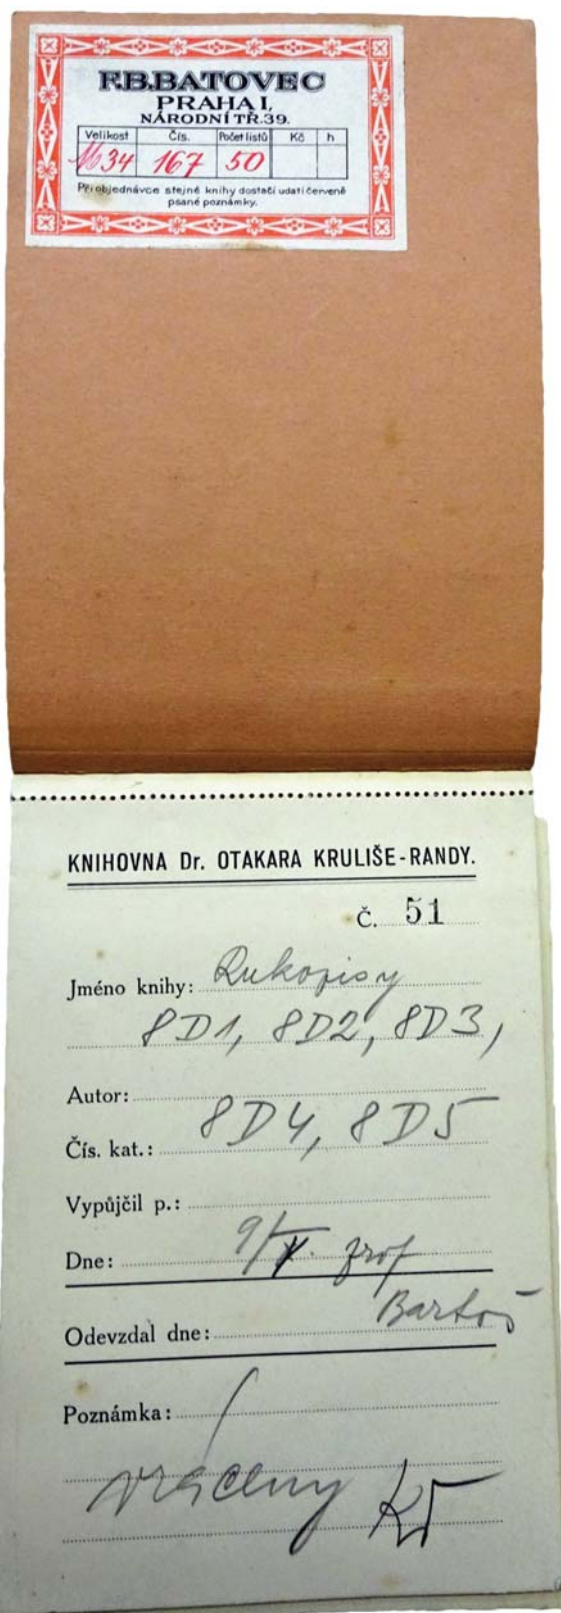 F.B.BATOVEC
PRAHA I,
NÁRODNÍ TŘ.39.
Velikost Čís. Počet listů Kč h
34 167 50
Při objednávce stejné knihy dostačí udati červeně
psané poznámky.
KNIHOVNA Dr. OTAKARA KRULIŠE-RANDY.
Č. 51
Jméno knihy: Rukopisy
8D1, 8D2, 8D3,
Autor:
8D4, 8D5
Čís. kat.:
Vypůjčil p.:
Dne: 9/V. prof
Bartoš
Odevzdal dne:
Poznámka:
vráceny KR